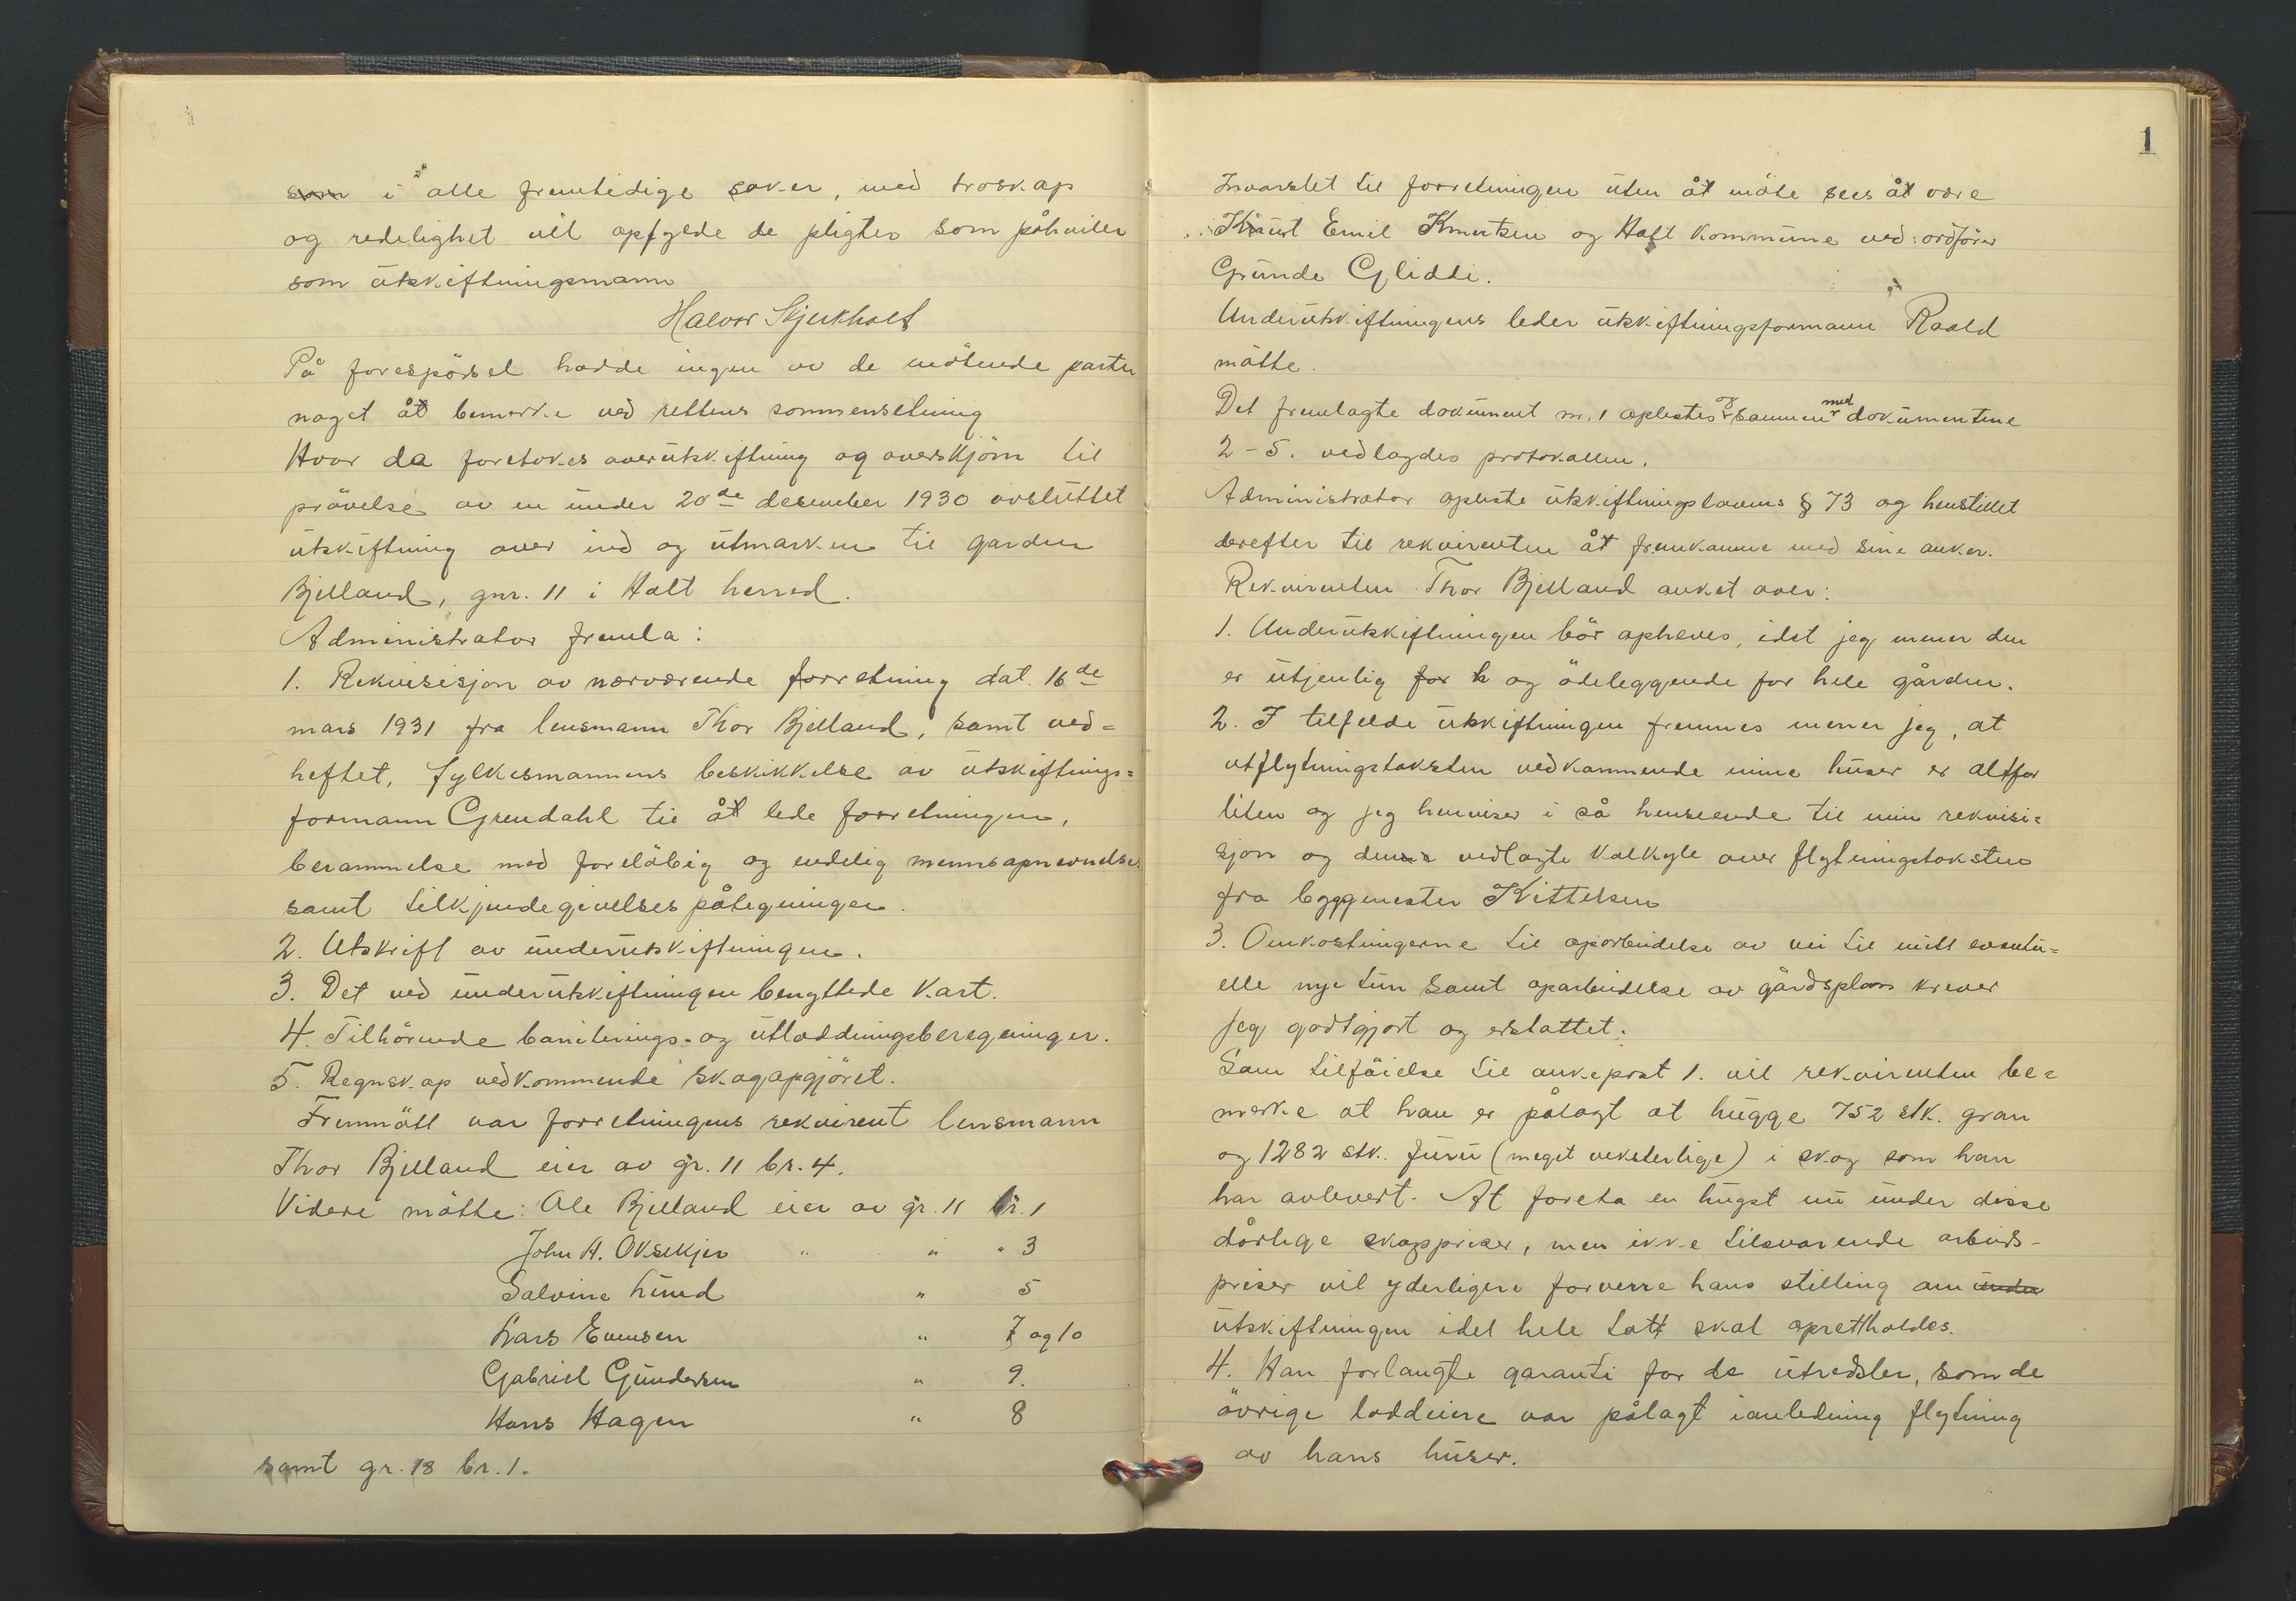 som i alle fremtidige saker, med troskap
og redelighet vil opfylde de pligter som påhviler
som utskiftningsmann
Halvor Skjerkholt
På forespörsel hadde ingen av de mötende parter
noget åt bemerke ved rettens sammensetning
Hvor da foretokes overutskiftning og overskjönn til
prövelse av en under 20de desember 1930 avsluttet
utskiftning over ind og utmarken til garden
Bjelland, gnr. 11 i Holt herred.
Administrator fremla:
1. Rekvisisjon av nærværende forretning dat. 16de
mars 1931 fra lensmann Thor Bjelland, samt ved=
heftet, fylkesmannens beskikkelse av utskiftnings=
formann Grendahl til åt lede forretningen,
berammelse med forelöbig og endelig mannsopnevnelse
samt tilkjendegivelsespåtegninger.
2. Utskrift av underutskiftningen.
3. Det ved underutskiftningen benyttede kart.
4. Tilhörende boniterings- og utloddningsberegninger.
5. Regnskap vedkommende skogopgjöret.
Fremmött var forretningens rekvirent lensmann
Thor Bjelland eier av gr. 11 br. 4.
Videre mötte: Ole Bjelland eier av gr. 11 br. 1
John A. Oksekjer " " " 3
Salvine Lund " 5
Lars Evensen " 7 og 10
Gabriel Gundersen " 9.
Hans Hagen " 8
samt gr. 18 br. 1.
1
Invarslet til forretningen uten åt möte sees åt være
Knut Emil Knutsen og Holt kommune ved ordförer
Grunde Gliddi.
Underutskiftningens leder utskiftningsformann Raald
mötte.
Det fremlagte dokument nr. 1 oplestes og sammen med dokumentene
2-5. vedlagdes protokollen.
Administrator opleste utskiftningslovens § 73 og henstillet
derefter til rekvirenten åt fremkomme med sine anker.
Rekvirenten Thor Bjelland anket over:
1. Underutskiftningen bör opheves, idet jeg mener den
er utjenlig for h og ödeleggende for hele gården.
2. I tilfelde utskiftningen fremmes mener jeg, at
utflytningstaksten vedkommende mine huser er altfor
liten og jeg henviser i så henseende til min rekvisi=
sjon og denne vedlagte kalkyle over flytningstaksten
fra byggmester Kittelsen
3. Omkostningerne til oparbeidelse av vei til mitt eventu=
elle nye tun samt oparbeidelse av gårdsplass krever
jeg godtgjort og erstattet.
Som tilföielse til ankepost 1. vil rekvirenten be=
merke at han er pålagt at hugge 752 stk. gran
og 1282 stk. furu (meget veksterlige) i skog som han
har avlevert. At foreta en hugst nu under disse
dårlige skogpriser, men ikke tilsvarende arbeids-
priser vil yderligere forverre hans stilling om under
utskiftningen idet hele tatt skal oprettholdes.
4. Han forlangte garanti for de utredsler, som de
övrige loddeiere var pålagt ianledning flytning
av hans huser.